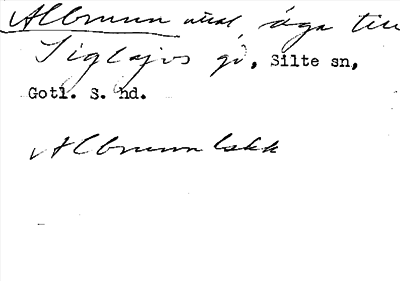 Albrunn åkal, äga till
Siglajvs gd, Silte sn,
Gotl. S. hd.
Albrunn